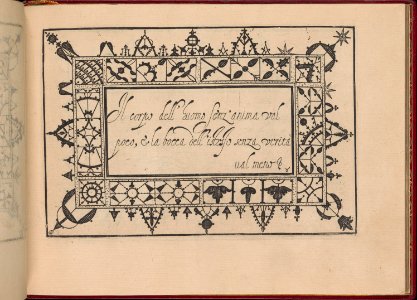 Il corpo dell' huomo senz' anima val
poco, & la bocca dell' istesso senza verità
val meno &.